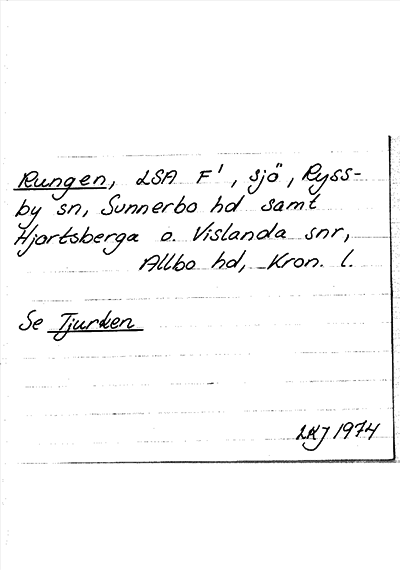 Rungen, LSA F', sjö, Ryss-
by sn, Sunnerbo hd samt
Hjortsberga o. Vislanda snr,
Allbo hd, Kron. l.
Se Tjurken
LKJ 1974